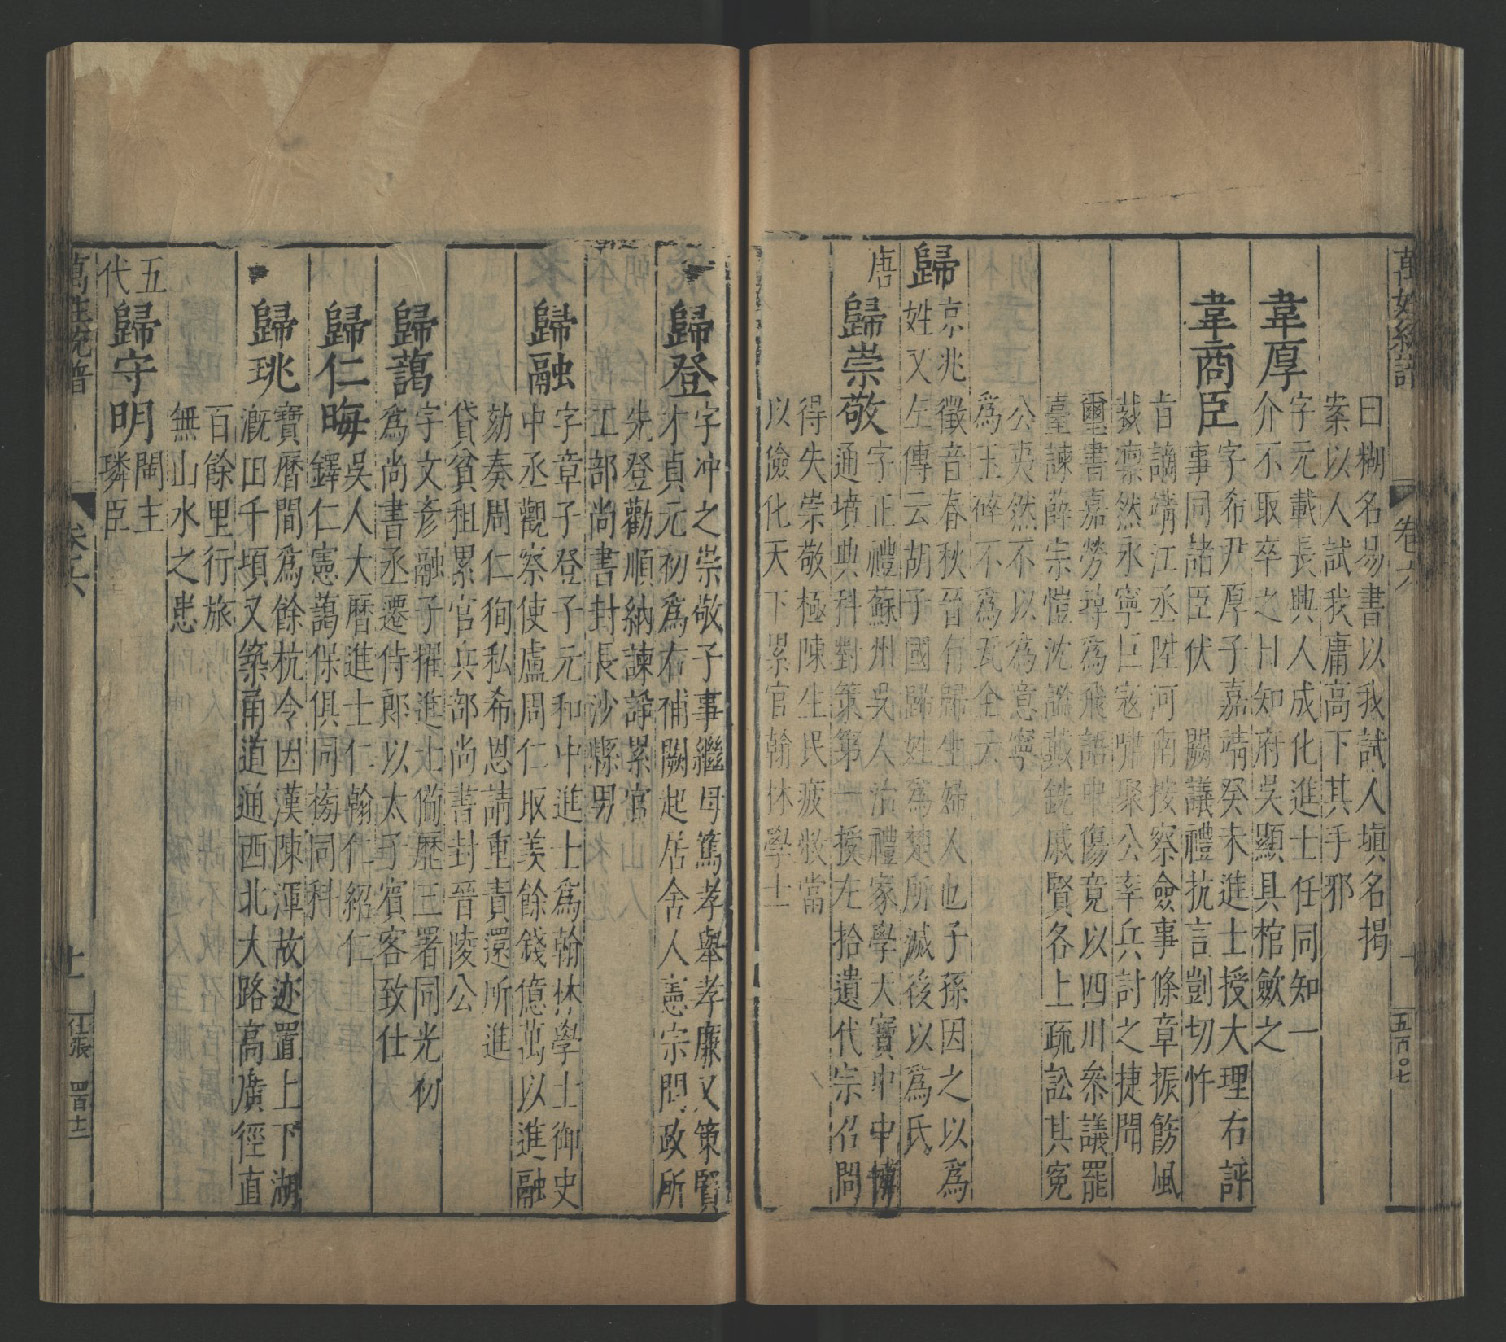 萬姓統譜
卷六
五百〇七
曰糊名易書以我試人塡名揭
案以人試我庸高下其手邪
韋厚
字元載長興人成化進士任同知一
介不取卒之日知府吳顯具棺歛之
韋商臣
字希尹厚子嘉靖癸未進士授大理右評
事同諸臣伏闕議禮抗言剴切忤
旨謫靖江丞陞河南按察僉事條章振飭風
裁凛然永寧巨寇嘯聚公率兵討之捷聞
璽書嘉勞尋爲飛語中傷竟以四川叅議罷
臺諫薛宗愷沈謐戴銑戚賢各上疏訟其寃
公夷然不以爲意寧
爲玉碎不爲瓦全云
歸
京兆徵音春秋晉有歸生婦人也子孫因之以爲
姓又左傳云胡子國歸姓爲楚所滅後以爲氏
唐
歸崇敬
字正禮蘇州吳人治禮家學天寶中中博
通墳典科對策第一授左拾遺代宗召問
得失崇敬極陳生民疲敝當
以儉化天下累官翰林學士
歸登
字冲之崇敬子事繼母篤孝舉孝廉又策賢
才貞元初爲右補闕起居舍人憲宗問政所
先登勸順納諫諍累官
工部尚書封長沙縣男
歸融
字章子登子元和中進士爲翰林學士御史
中丞觀察使盧周仁取羨餘錢億萬以進融
劾奏周仁徇私希恩請重責還所進
貸貧租累官兵部尚書封晉陵公
歸藹
字文彥融子擢進士備歷三署同光初
爲尚書丞遷侍郎以太子賓客致仕
歸仁晦
吳人大曆進士仁翰仁紹仁
鐸仁憲藹係俱同榜同科
歸珧
寶曆間爲餘杭令因漢陳渾故迹置上下湖
漑田千頃又築甬道通西北大路高廣徑直
百餘里行旅
無山水之患
五代
歸守明
閩主
璘臣
萬姓統譜
卷六
十一